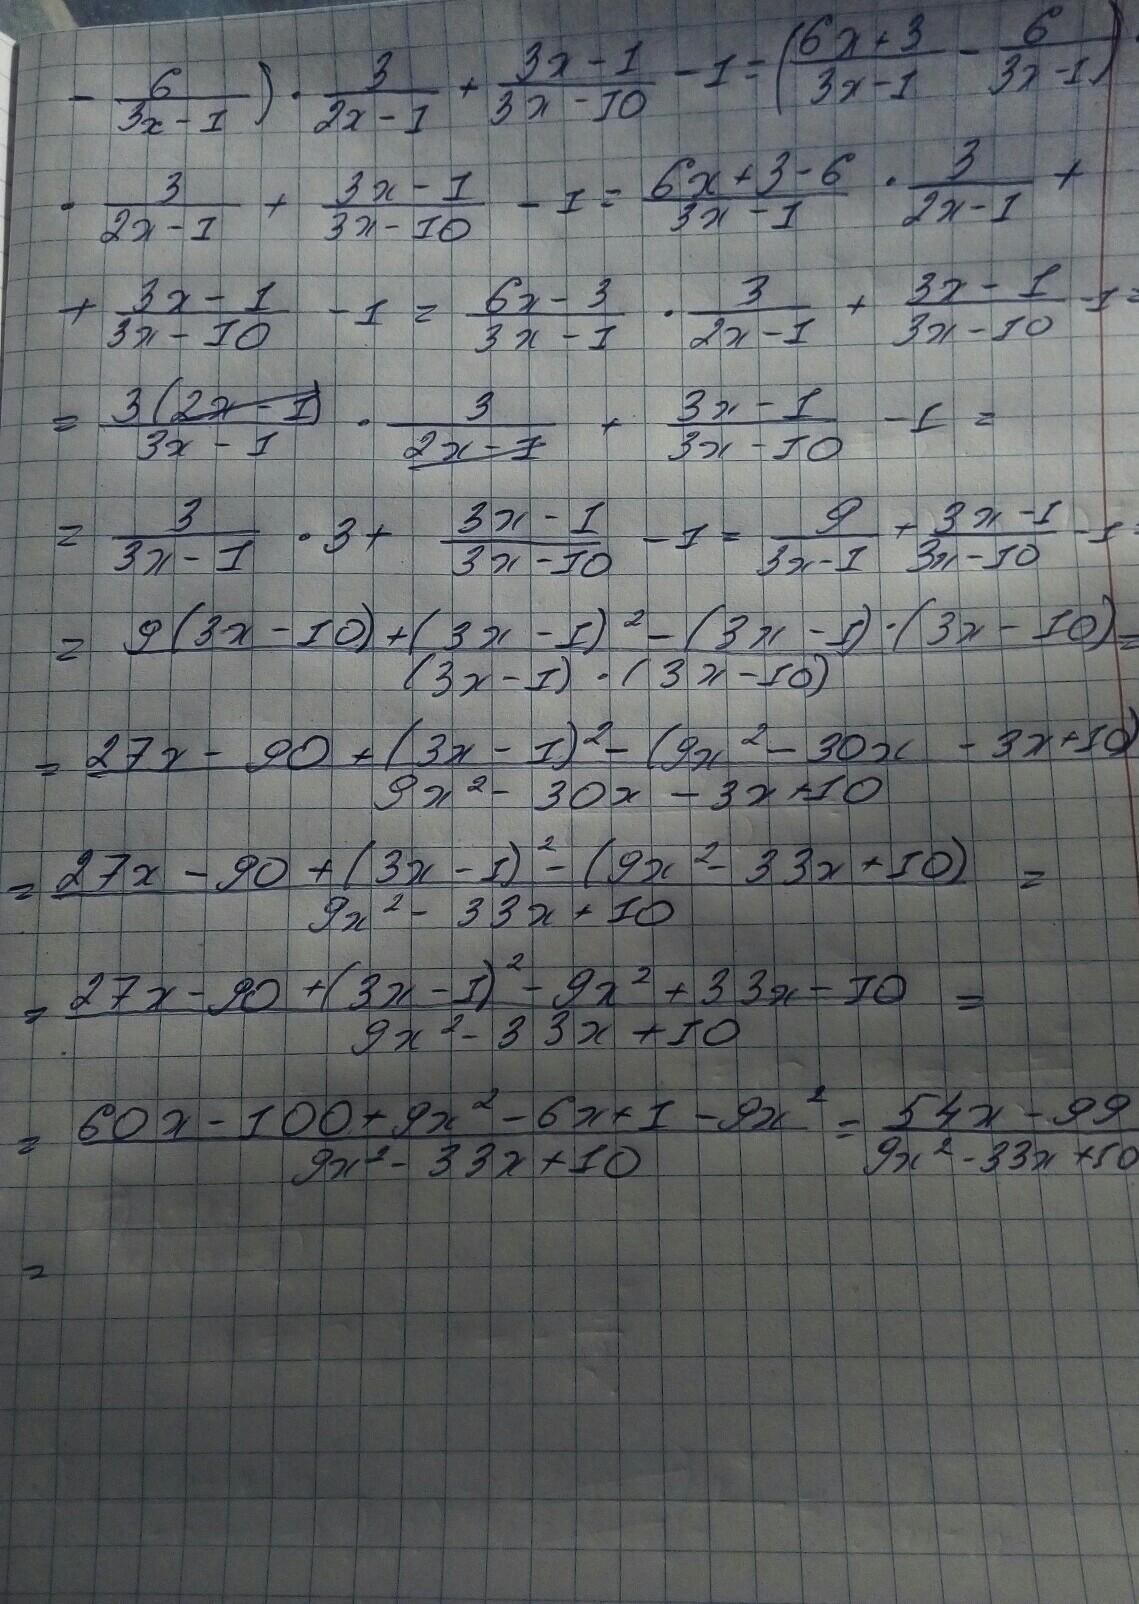 - 6/(3x-1)) · 3/(2x-1) + (3x-1)/(3x-10) - 1 = ((6x+3)/(3x-1) - 6/(3x-1)) ·
· 3/(2x-1) + (3x-1)/(3x-10) - 1 = (6x+3-6)/(3x-1) · 3/(2x-1) +
+ (3x-1)/(3x-10) - 1 = (6x-3)/(3x-1) · 3/(2x-1) + (3x-1)/(3x-10) - 1 =
= 3(2x-1)/(3x-1) · 3/(2x-1) + (3x-1)/(3x-10) - 1 =
= 3/(3x-1) · 3 + (3x-1)/(3x-10) - 1 = 9/(3x-1) + (3x-1)/(3x-10) - 1 =
= (9(3x-10)+(3x-1)²-(3x-1)·(3x-10))/((3x-1)·(3x-10)) =
= (27x-90+(3x-1)²-(9x²-30x-3x+10))/(9x²-30x-3x+10)
= (27x-90+(3x-1)²-(9x²-33x+10))/(9x²-33x+10) =
= (27x-90+(3x-1)²-9x²+33x-10)/(9x²-33x+10) =
= (60x-100+9x²-6x+1-9x²)/(9x²-33x+10) = (54x-99)/(9x²-33x+10)
=